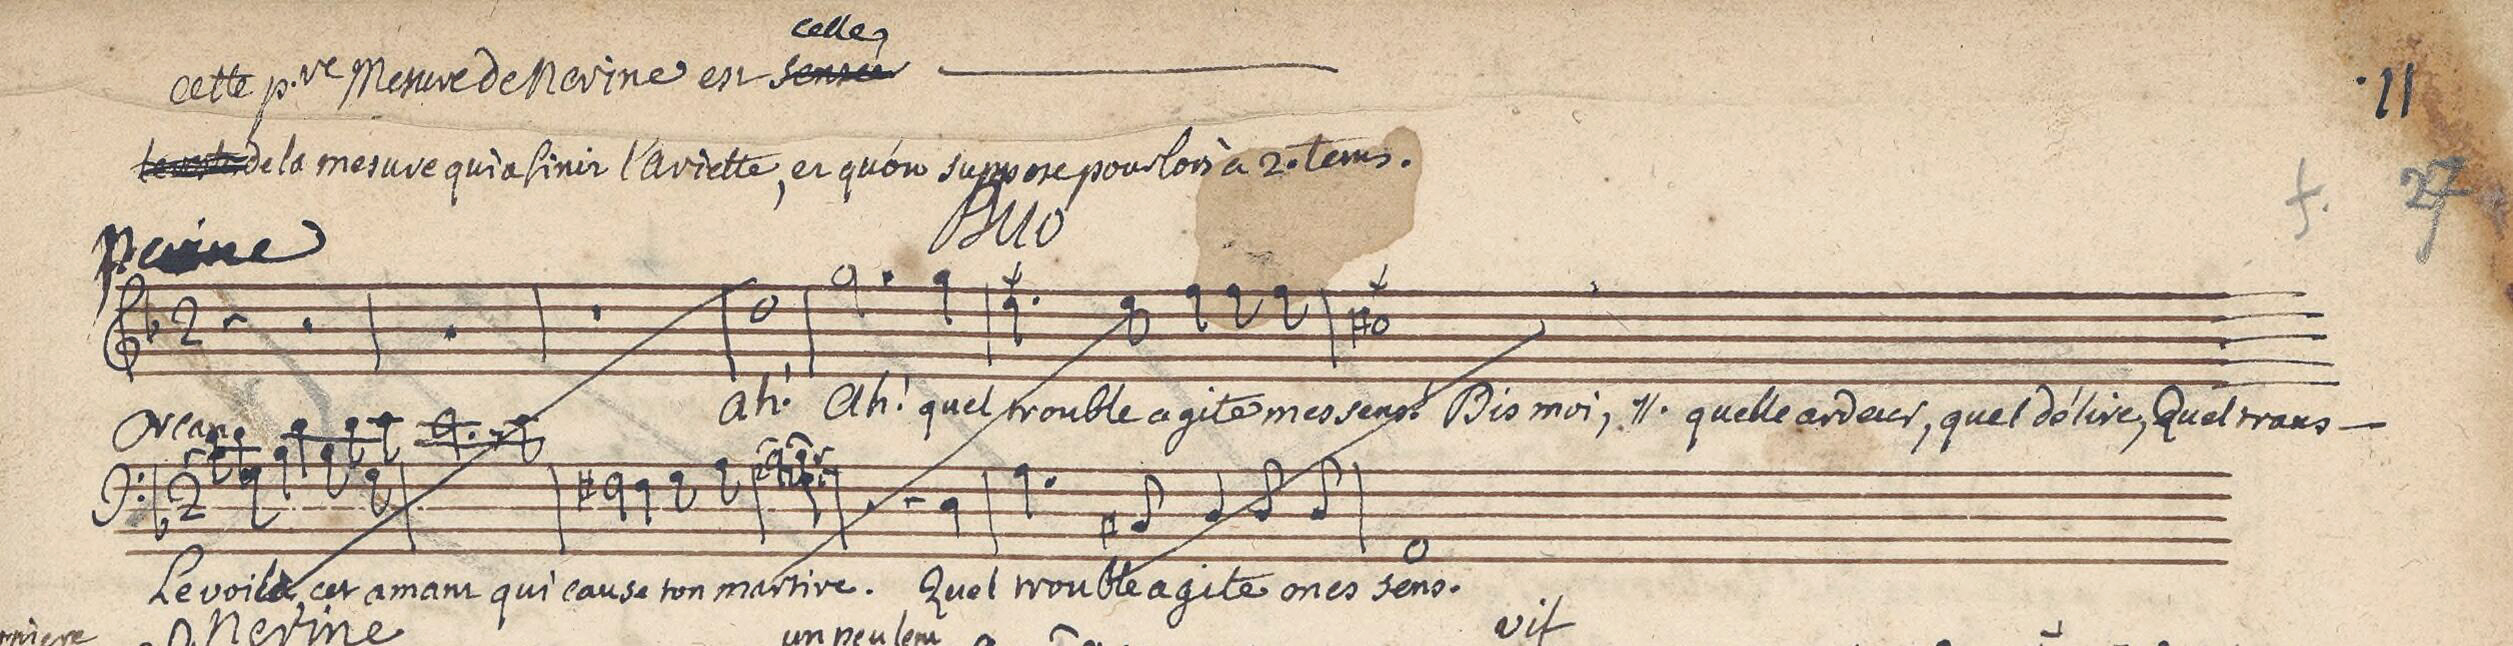 celle
cette p.re Mesure de Nerine est sensée
11
le reste de la mesure qui a finir l'Ariette, et qu'on suppose pour lors à 2. tems.
f. 27
DUO
Nerine
2
Ah! Ah! quel trouble agite mes sens! Dis moi, 11. quelle ardeur, quel délire, Quel trans-
Orcan
2
Le voila, cet amant qui cause ton martire. Quel trouble agite mes sens.
Nerine un peu lent vif